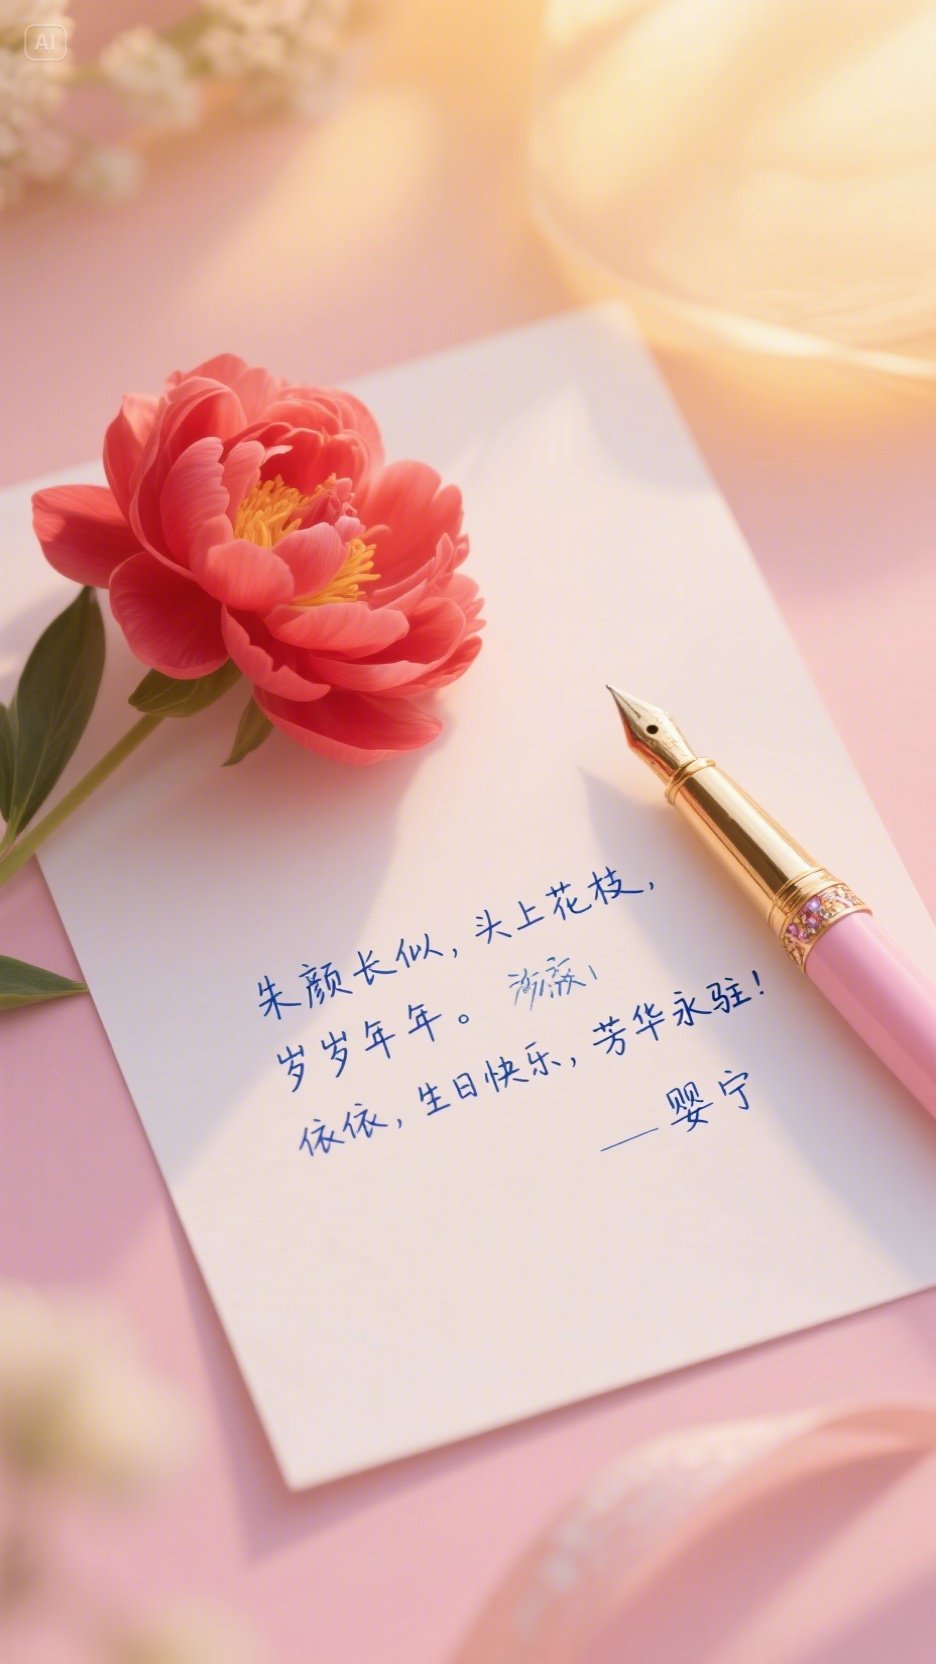 AI
朱颜长似，头上花枝，
岁岁年年。
依依，生日快乐，芳华永驻！
——婴宁